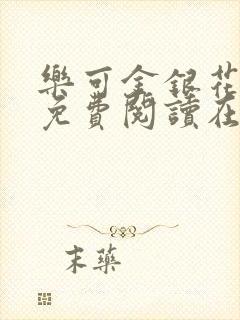 樂可金銀花
免費閱讀在
末藥